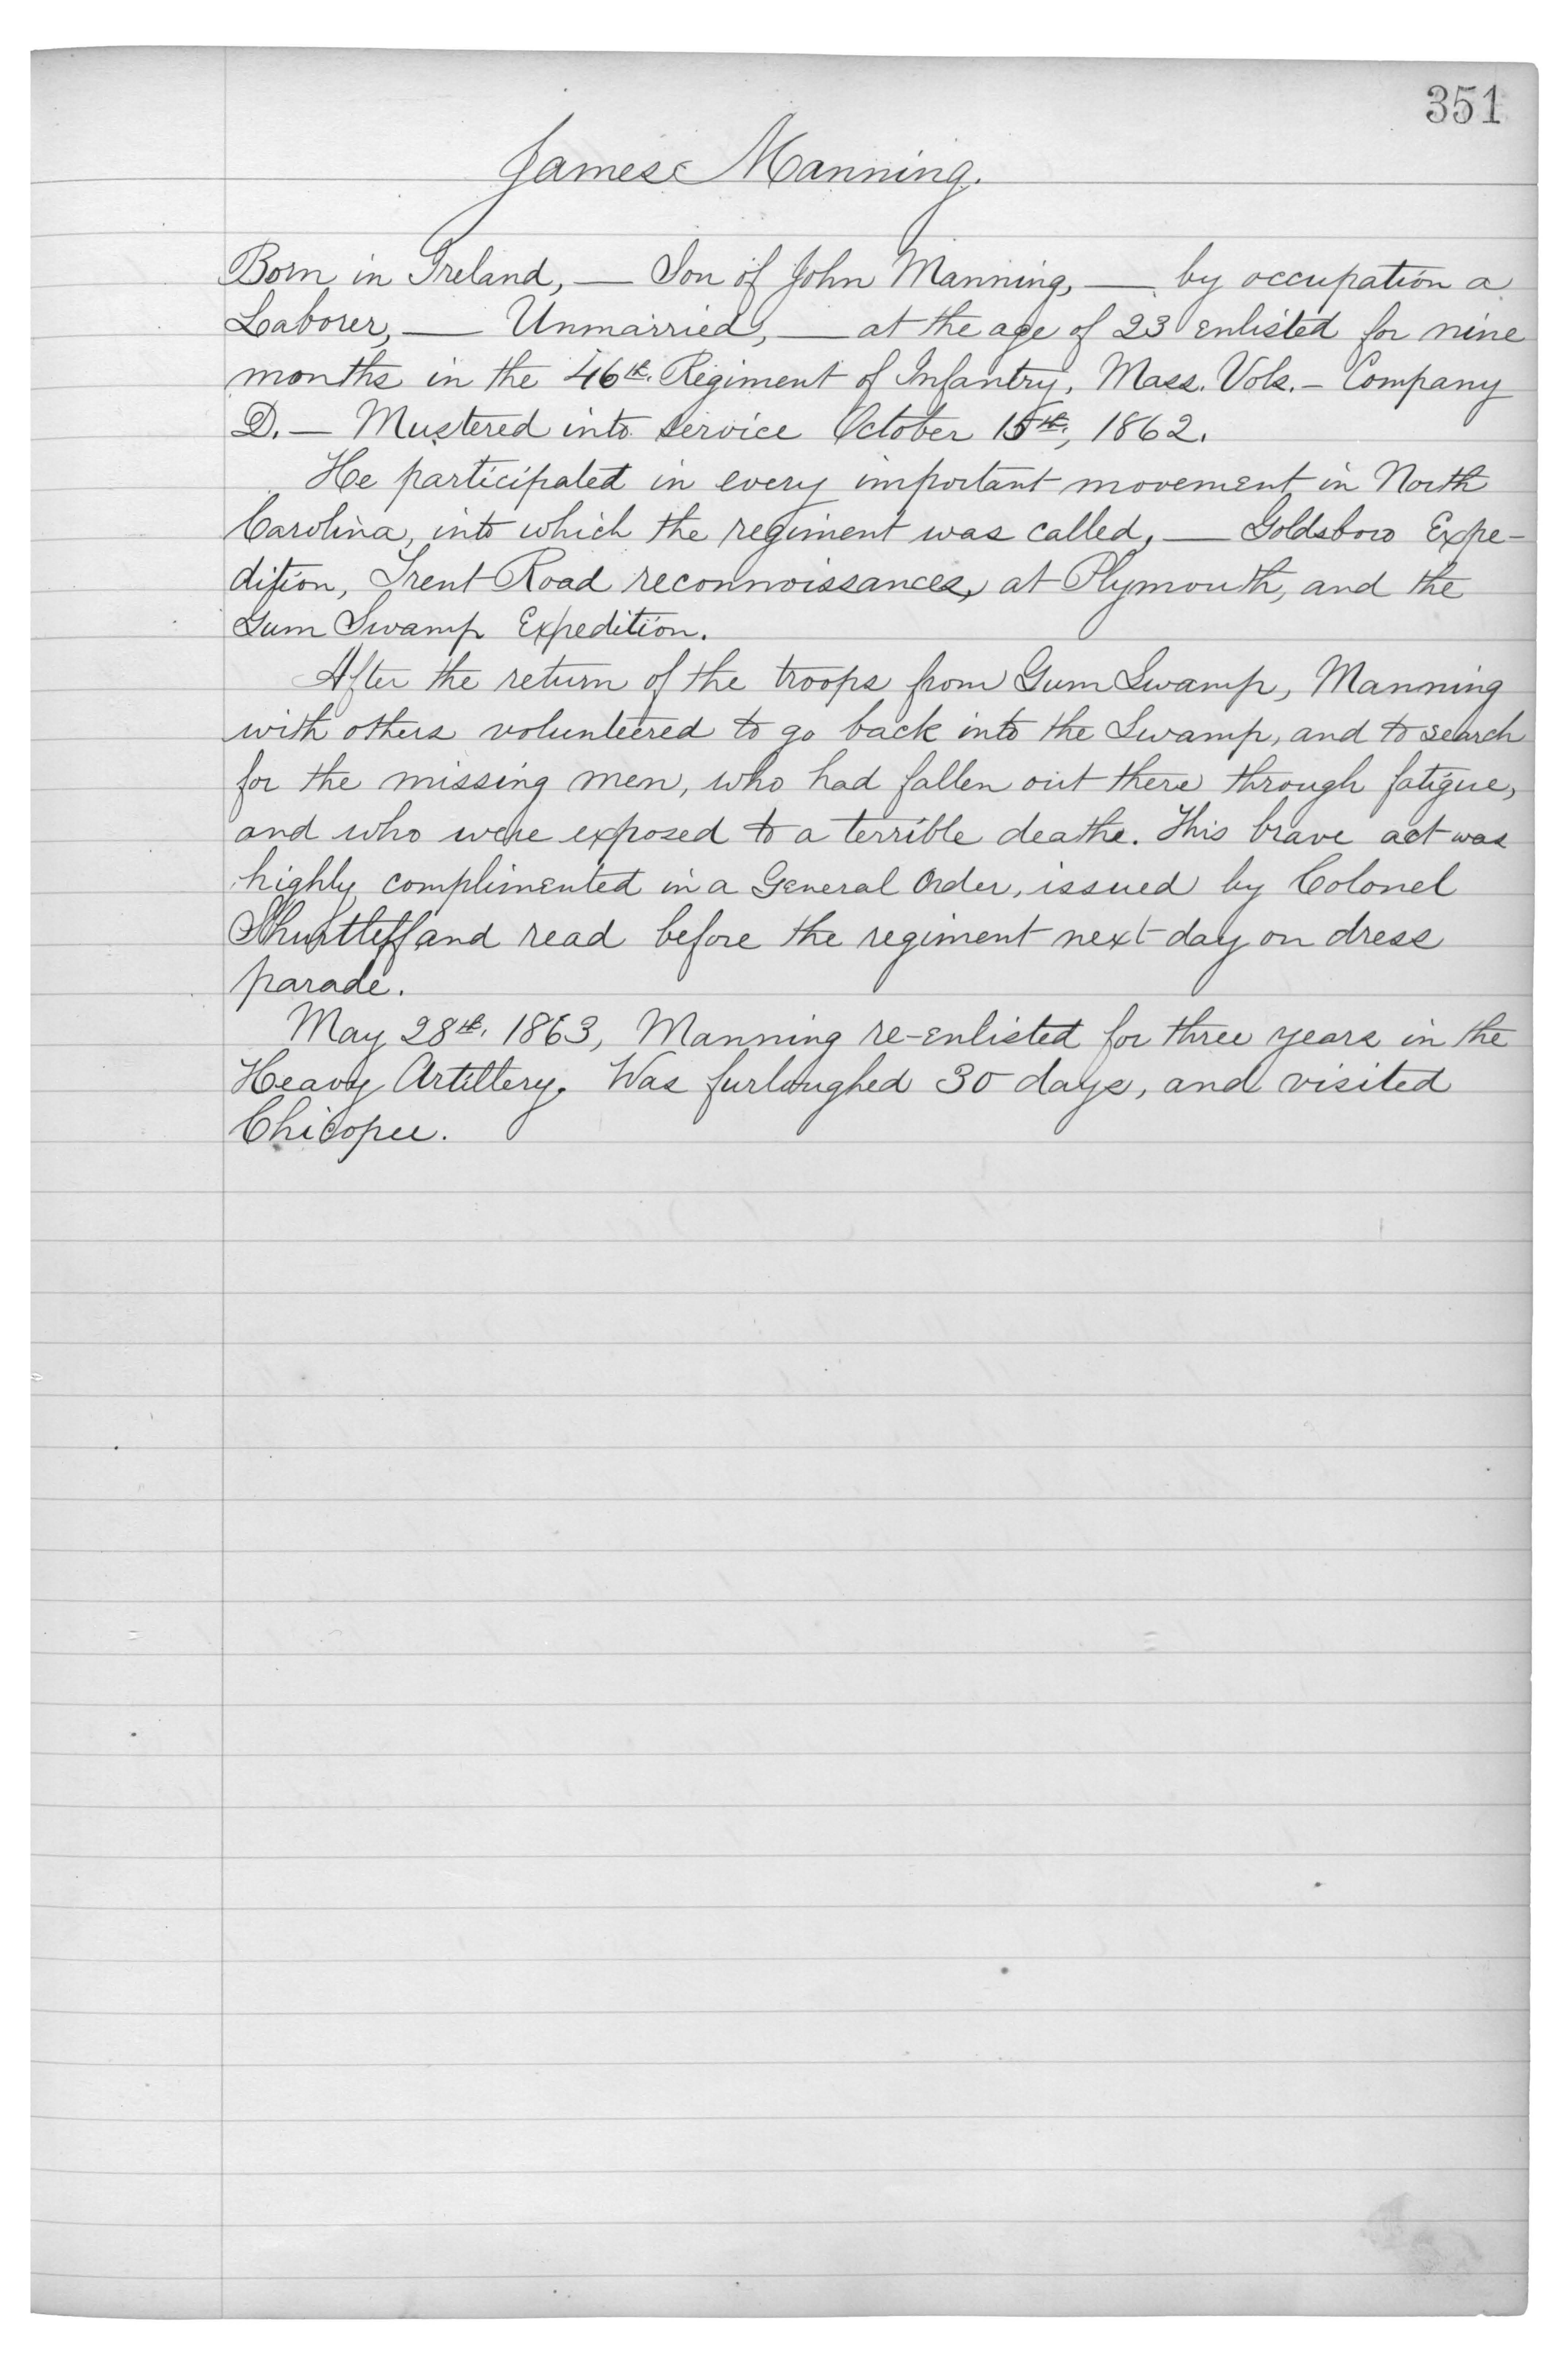 351
James Manning.
Born in Ireland, — Son of John Manning, — by occupation a
Laborer, — Unmarried, — at the age of 23 enlisted for nine
months in the 46th. Regiment of Infantry, Mass. Vols. – Company
D. — Mustered into service October 15th, 1862.
He participated in every important movement in North
Carolina, into which the regiment was called, — Goldsboro Expe-
dition, Trent Road reconnoissances, at Plymouth, and the
Gum Swamp Expedition.
After the return of the troops from Gum Swamp, Manning
with others volunteered to go back into the Swamp, and to search
for the missing men, who had fallen out there through fatigue,
and who were exposed to a terrible deathe. This brave act was
highly complimented in a General Order, issued by Colonel
Shurtleff and read before the regiment next day on dress
parade.
May 28th. 1863, Manning re-enlisted for three years in the
Heavy Artillery. Was furloughed 30 days, and visited
Chicopee.